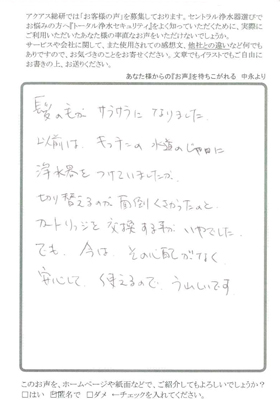 アクアス総研では「お客様の声」を募集しております。セントラル浄水器選びで
お悩みの方へ『トータル浄水セキュリティ』をよく知っていただくために、実際に
ご利用いただいたあなた様の率直なお声をいただけないでしょうか。
サービスや会社に関して、また使用されての感想文、他社との違いなど何でも
ありですので、お気づきのことをお寄せください。文章でもイラストでもご自由に
お書きの上、お送りください。
あなた様からの『お声』を待ちこがれる 中永より
髪の毛が サラサラに なりました。
以前は、キッチンの 水道のじゃ口に
浄水器を つけていましたが、
切り替えるのが 面倒くさかったのと、
カートリッジを 交換する事が いやでした。
でも、今は、その心配がなく
安心して、使えるので うれしいです
このお声を、ホームページや紙面などで、ご紹介してもよろしいでしょうか？
□はい ☑匿名で □ダメ ←チェックを入れてください。